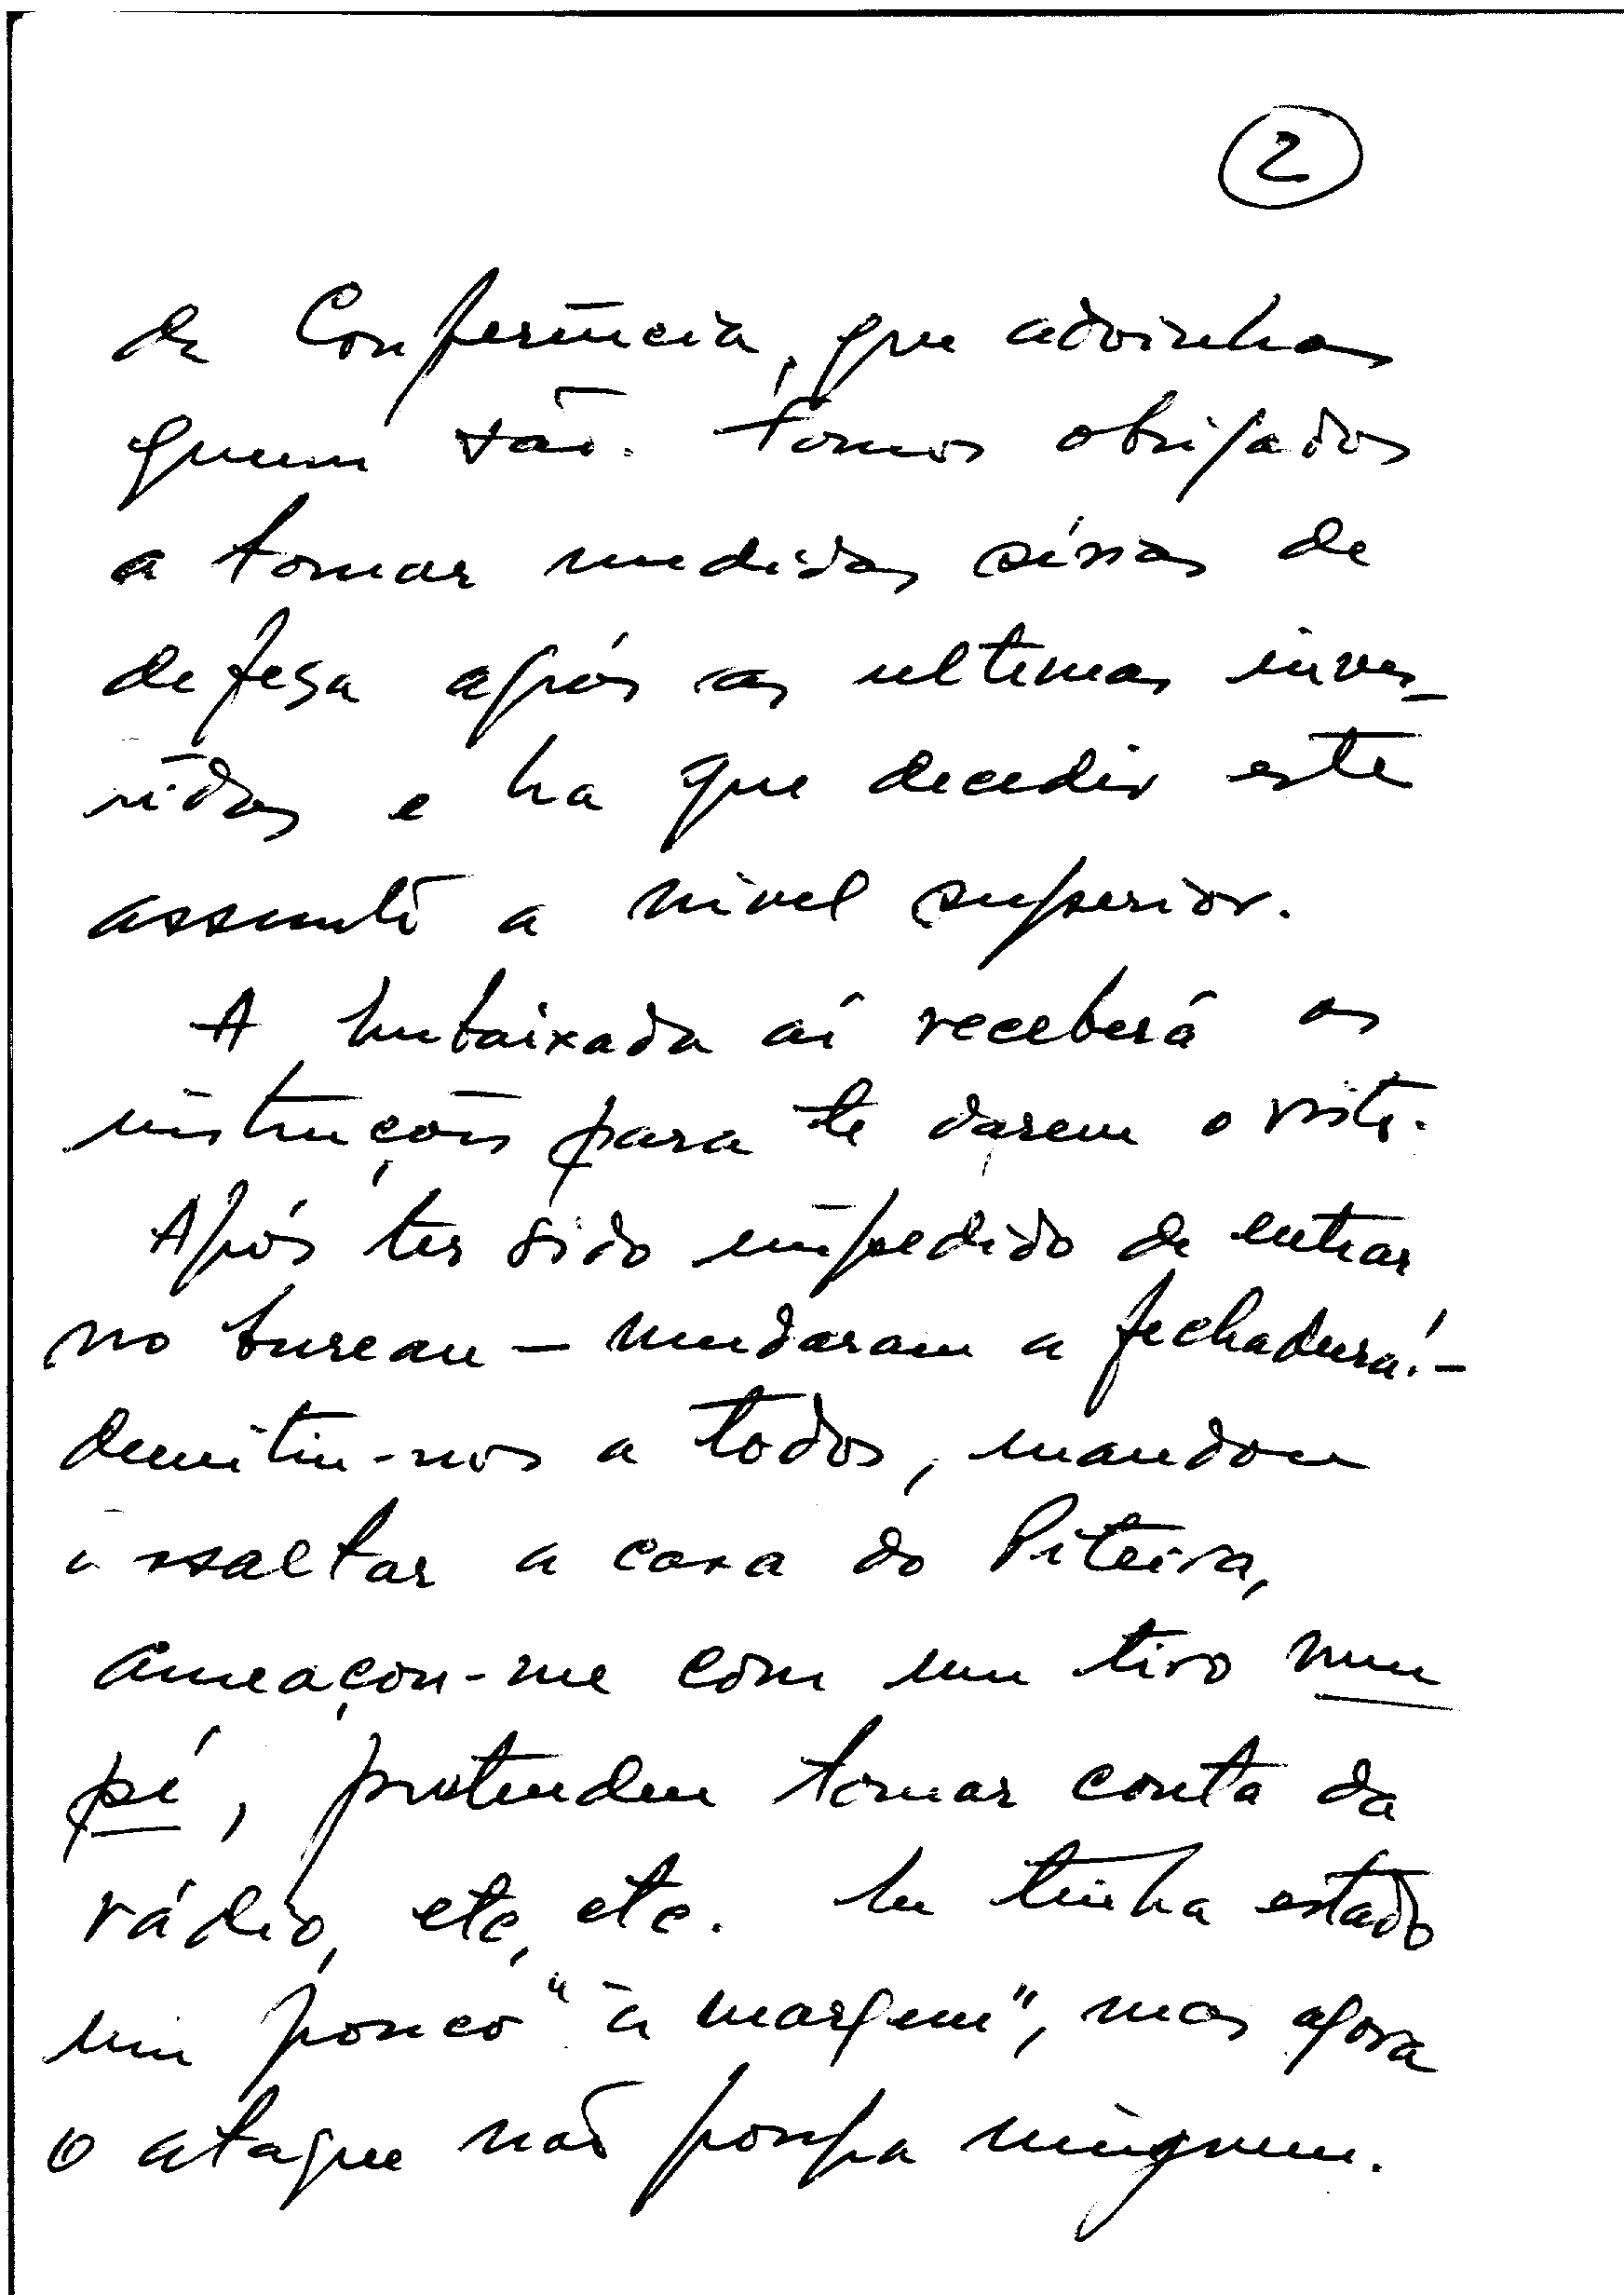 2
da Conferência, que advinhas
quem são. Fomos obrigados
a tomar medidas sérias de
defesa após as ultimas inves-
tidas e ha que decedir este
assunto a nivel superior.
A Embaixada aí receberá as
instruções para te darem o visto.
Após ter sido impedido de entrar
no bureau — mudaram a fechadura! —
demitiu-nos a todos, mandou
assaltar a casa do Piteira,
ameaçou-me com um tiro num
pé, pretendeu tomar conta da
rádio, etc, etc. Eu tinha estado
um pouco "à margem", mas agora
o ataque não poupa ninguem.